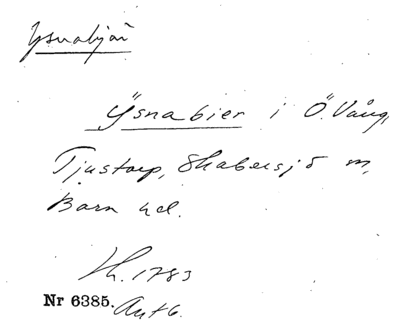 Ysnabjär
Ysnabier i Ö. Vång,
Tjustorp, Skabersjö sn,
Bara hd.
Kh. 1783
Nr 6385. Avt 6.